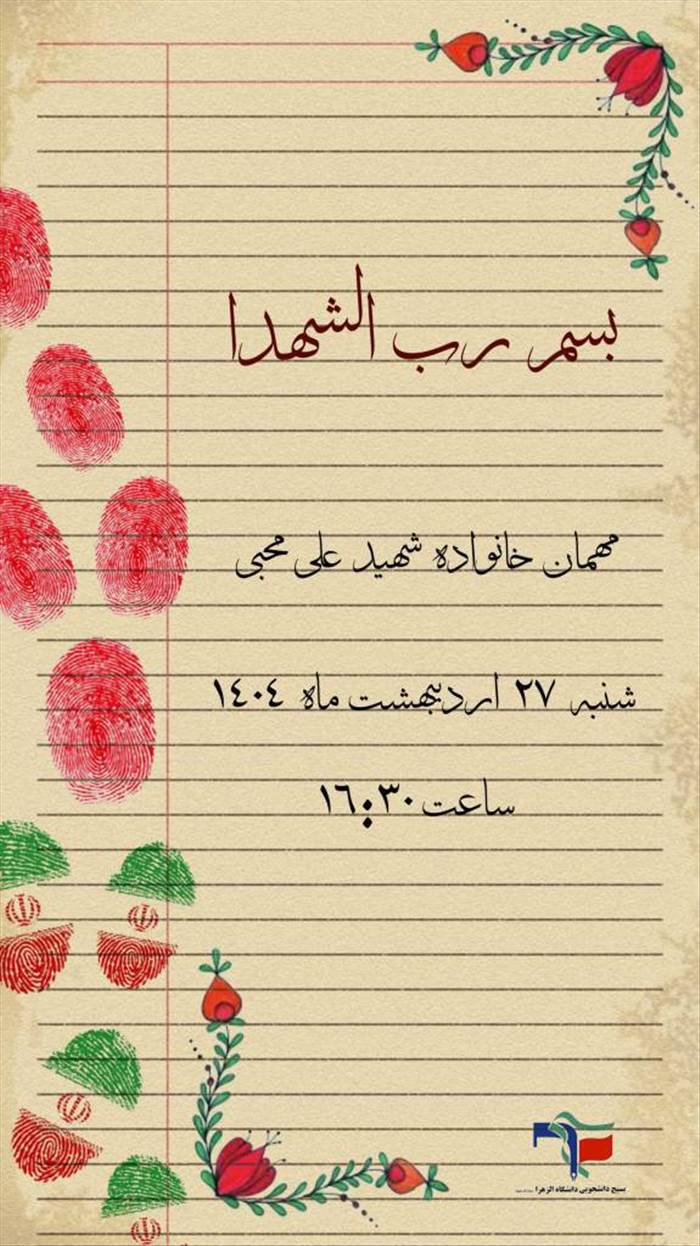 بسم رب الشهدا
مهمان خانواده شهید علی محبی
شنبه ۲۷ اردیبهشت ماه ۱۴۰۴
ساعت ۱۶:۳۰
بسیج دانشجویی دانشگاه الزهرا